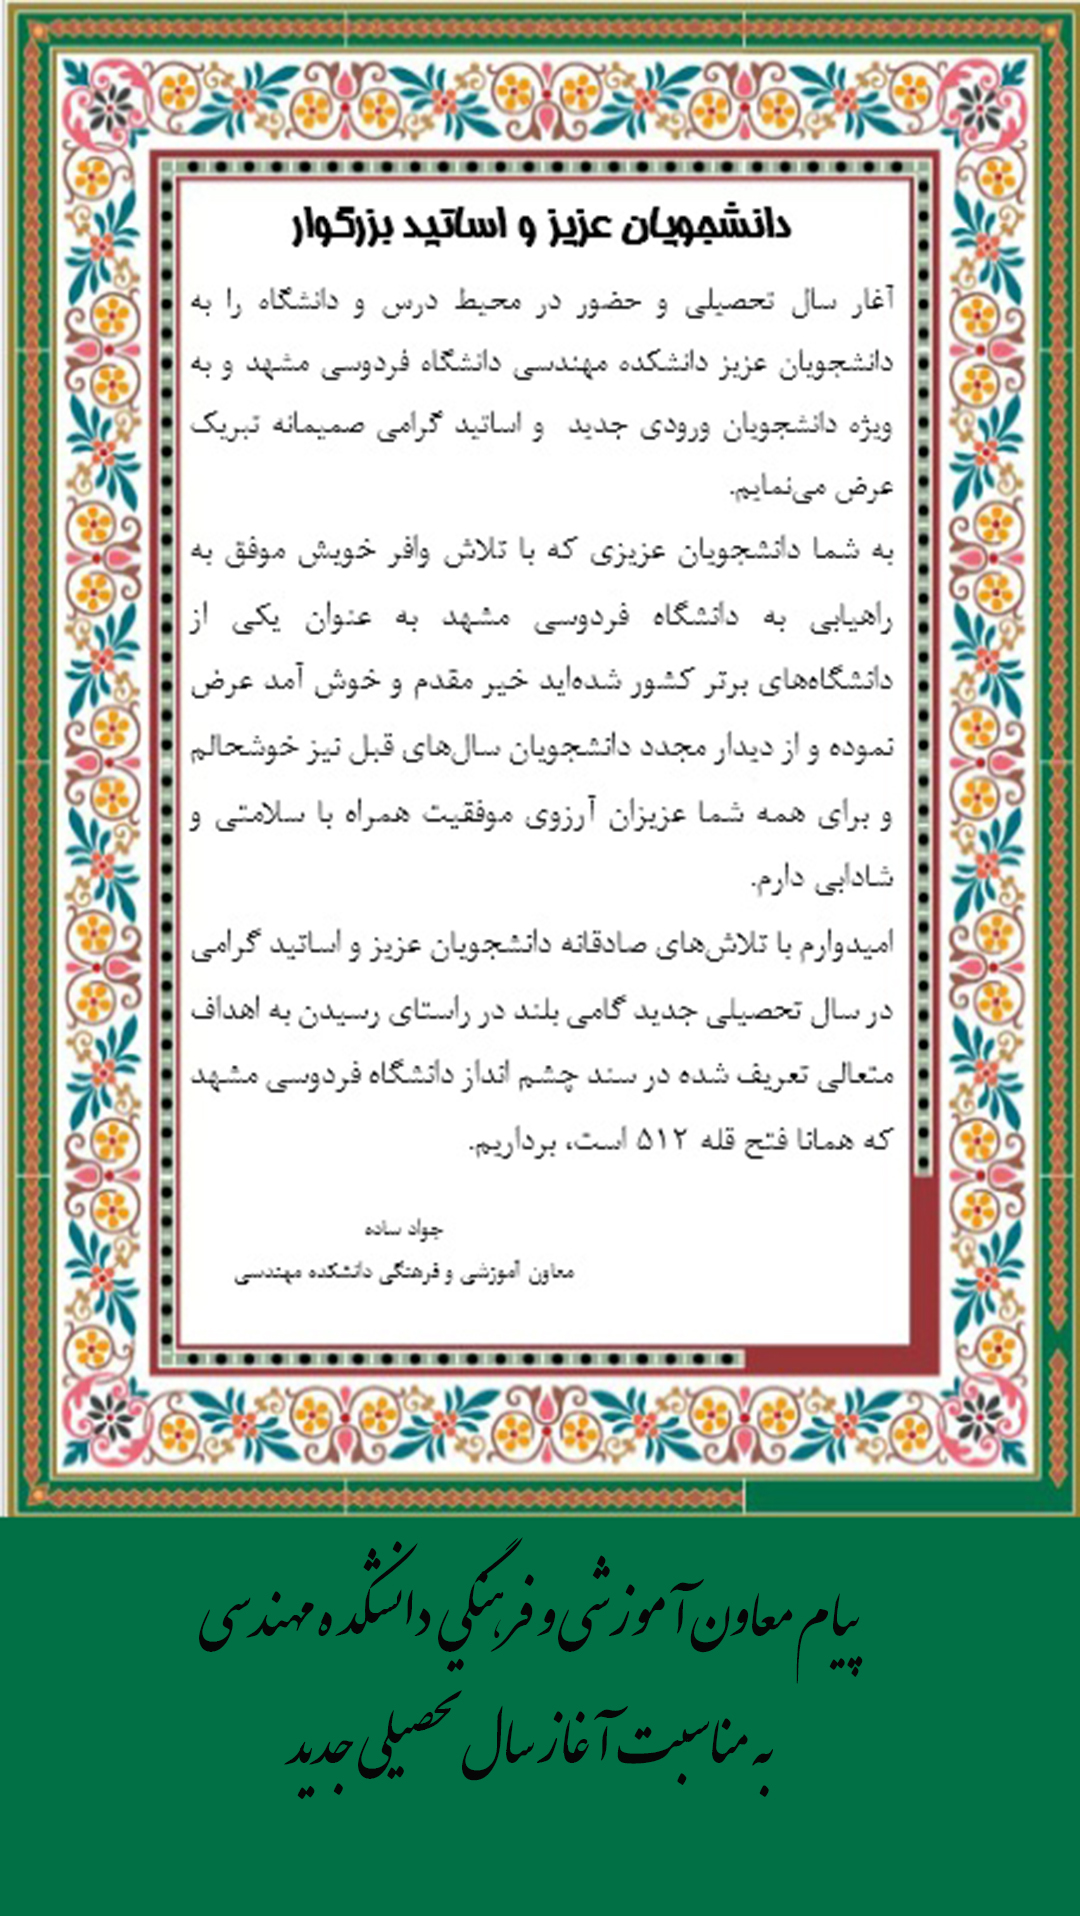 دانشجویان عزیز و اساتید بزرگوار
آغار سال تحصیلی و حضور در محیط درس و دانشگاه را به
دانشجویان عزیز دانشکده مهندسی دانشگاه فردوسی مشهد و به
ویژه دانشجویان ورودی جدید و اساتید گرامی صمیمانه تبریک
عرض می‌نمایم.
به شما دانشجویان عزیزی که با تلاش وافر خویش موفق به
راهیابی به دانشگاه فردوسی مشهد به عنوان یکی از
دانشگاه‌های برتر کشور شده‌اید خیر مقدم و خوش آمد عرض
نموده و از دیدار مجدد دانشجویان سال‌های قبل نیز خوشحالم
و برای همه شما عزیزان آرزوی موفقیت همراه با سلامتی و
شادابی دارم.
امیدوارم با تلاش‌های صادقانه دانشجویان عزیز و اساتید گرامی
در سال تحصیلی جدید گامی بلند در راستای رسیدن به اهداف
متعالی تعریف شده در سند چشم انداز دانشگاه فردوسی مشهد
که همانا فتح قله ۵۱۲ است، برداریم.
جواد ساده
معاون آموزشی و فرهنگی دانشکده مهندسی
پیام معاون آموزشی و فرهنگی دانشکده مهندسی
به مناسبت آغاز سال تحصیلی جدید